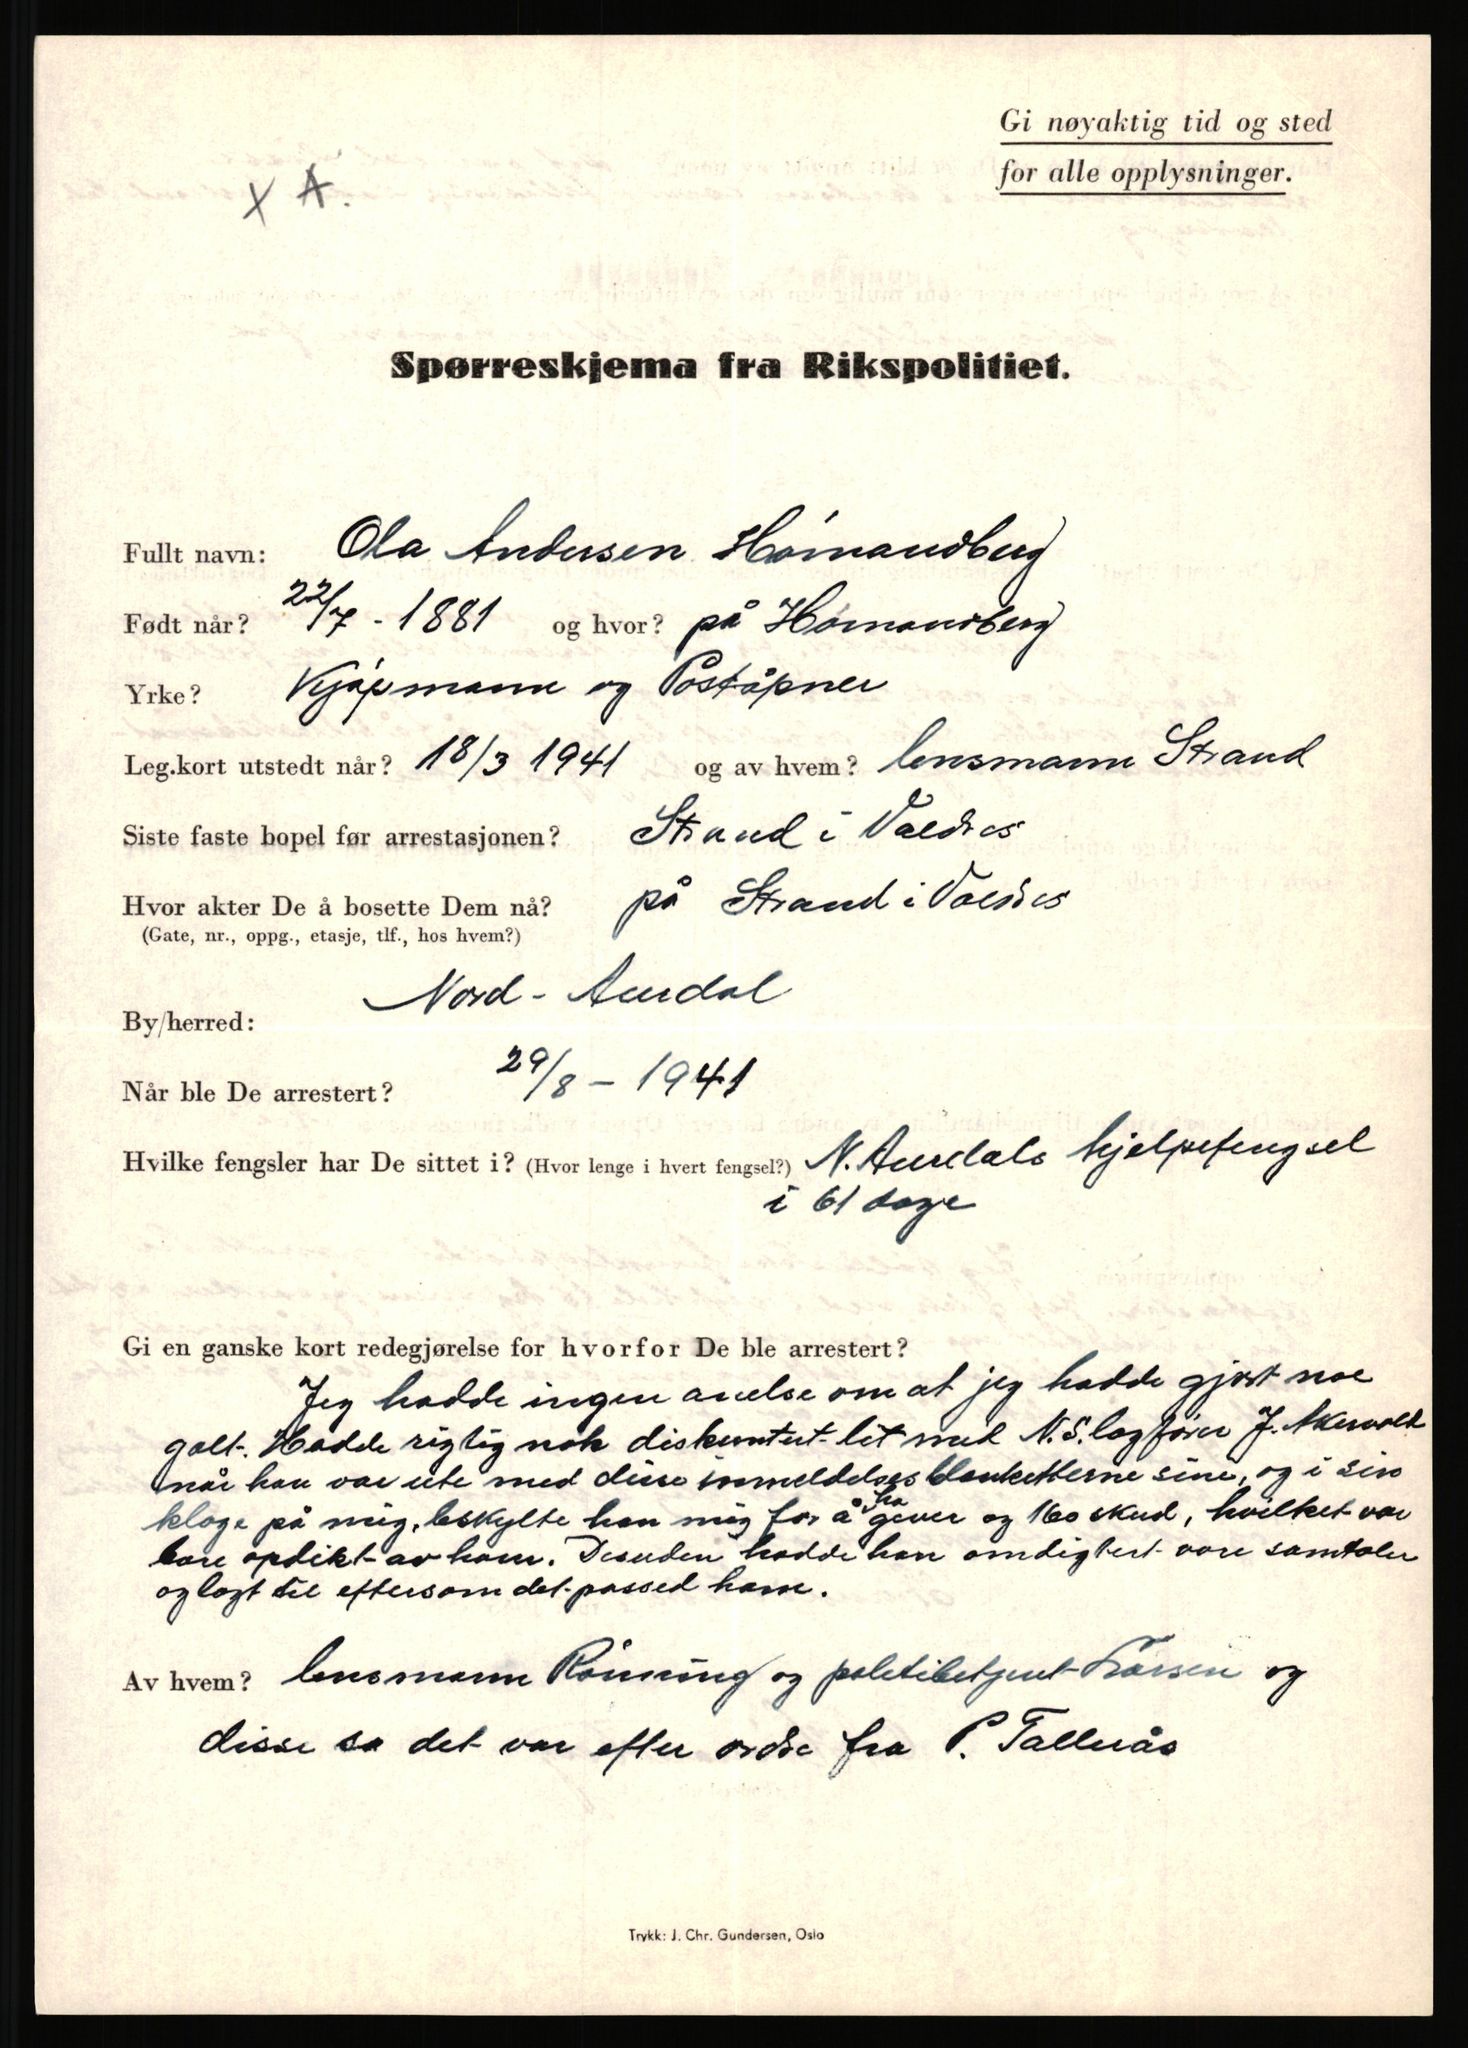 Gi nøyaktig tid og sted
for alle opplysninger.
X A.
Spørreskjema fra Rikspolitiet.
Fullt navn: Ola Andersen Hómandberg
Født når? 22/7 - 1881 og hvor? på Hómandberg
Yrke? Kjøpmann og Poståpner
Leg.kort utstedt når? 18/3 1941 og av hvem? lensmann Strand
Siste faste bopel før arrestasjonen? Strand i Valdres
Hvor akter De å bosette Dem nå? på Strand i Valdres
(Gate, nr., oppg., etasje, tlf., hos hvem?)
By/herred: Nord - Aurdal
Når ble De arrestert? 29/8 - 1941
Hvilke fengsler har De sittet i? (Hvor lenge i hvert fengsel?) N. Aurdals hjelpefengsel
i 61 dage
Gi en ganske kort redegjørelse for hvorfor De ble arrestert?
Jeg hadde ingen anelse om at jeg hadde gjørt noe
galt. Hadde rigtig nok diskuntert litt med N.S. lagfører J.
når han var ute med disse inmeldelsesblanketterne sine, og i sin
klage på mig, beskylte han mig for å ha gever og 160 skud, hvilket var
bare opdikt av ham. Desuden hadde han omdigtert vore samtaler
og lagt til eftersom det passed ham.
Av hvem? lensmann Rónning og politibetjent Larsen og
disse sa det var efter ordre fra P. Tallerås
Trykk: J. Chr. Gundersen, Oslo